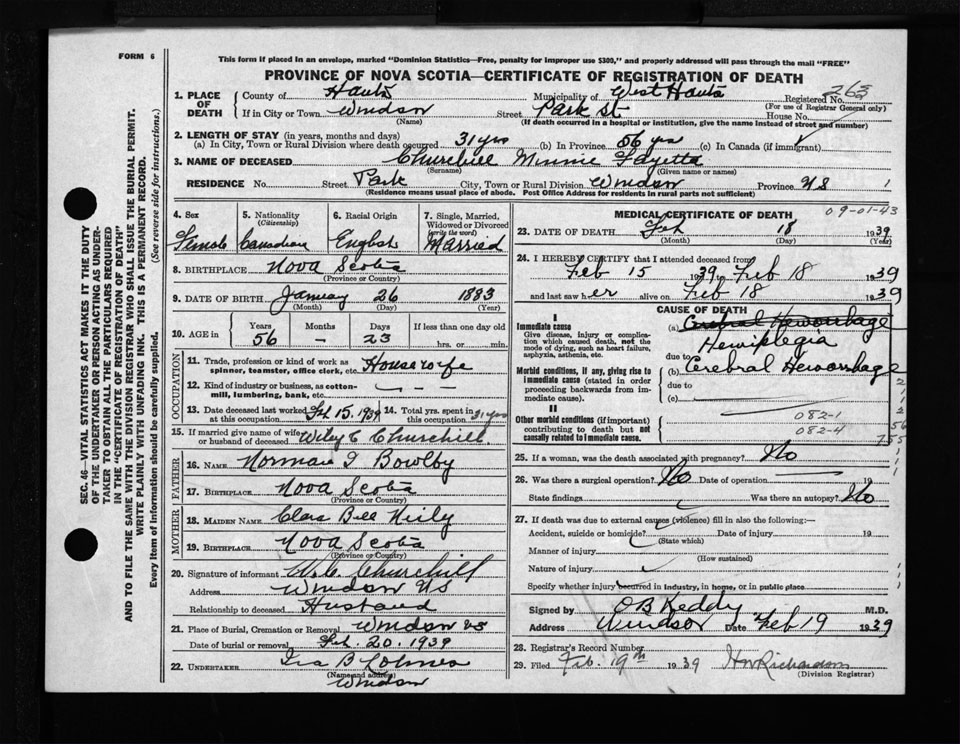 FORM 6
This form if placed in an envelope, marked "Dominion Statistics—Free, penalty for improper use $300," and properly addressed will pass through the mail "FREE"
PROVINCE OF NOVA SCOTIA—CERTIFICATE OF REGISTRATION OF DEATH
SEC. 46—VITAL STATISTICS ACT MAKES IT THE DUTY
OF THE UNDERTAKER OR PERSON ACTING AS UNDER-
TAKER TO OBTAIN ALL THE PARTICULARS REQUIRED
IN THE "CERTIFICATE OF REGISTRATION OF DEATH"
AND TO FILE THE SAME WITH THE DIVISION REGISTRAR WHO SHALL ISSUE THE BURIAL PERMIT.
WRITE PLAINLY WITH UNFADING INK. THIS IS A PERMANENT RECORD.
Every item of information should be carefully supplied. (See reverse side for instructions.)
1. PLACE OF DEATH
County of Hants Municipality of West Hants Registered No. 263
(For use of Registrar General only)
If in City or Town Windsor Street Park St House No.
(Name) (If death occurred in a hospital or institution, give the name instead of street and number)
2. LENGTH OF STAY (in years, months and days)
(a) In City, Town or Rural Division where death occurred 31 yrs (b) In Province 56 yrs (c) In Canada (if immigrant)
3. NAME OF DECEASED Churchill Minnie Fayetta
(Surname) (Given name or names)
RESIDENCE No. Street Park City, Town or Rural Division Windsor Province NS 1
(Residence means usual place of abode. Post Office Address for residents in rural parts not sufficient)
4. Sex
Female
5. Nationality
(Citizenship)
Canadian
6. Racial Origin
English
7. Single, Married,
Widowed or Divorced
(write the word)
Married
8. BIRTHPLACE Nova Scotia
(Province or Country)
9. DATE OF BIRTH January 26 1883
(Month) (Day) (Year)
10. AGE in
Years Months Days If less than one day old
56 – 23 hrs. or min.
OCCUPATION
11. Trade, profession or kind of work as
spinner, teamster, office clerk, etc. Housewife
12. Kind of industry or business, as cotton-
mill, lumbering, bank, etc. — — —
13. Date deceased last worked at this occupation Feb 15, 1939 14. Total yrs. spent in this occupation 31 yrs
15. If married give name of wife
or husband of deceased Wiley C Churchill
FATHER
16. NAME Norman I Bowlby
17. BIRTHPLACE Nova Scotia
(Province or Country)
MOTHER
18. MAIDEN NAME Clara Bell Neily
19. BIRTHPLACE Nova Scotia
(Province or Country)
20. Signature of informant W. C. Churchill
Address Windsor NS
Relationship to deceased Husband
21. Place of Burial, Cremation or Removal Windsor NS
Date of burial or removal Feb. 20. 1939
22. UNDERTAKER Ira B
(Name and address)
Windsor
MEDICAL CERTIFICATE OF DEATH
09-01-43
23. DATE OF DEATH Feb 18 1939
(Month) (Day) (Year)
24. I HEREBY CERTIFY that I attended deceased from
Feb 15 1939 to Feb 18 1939
and last saw her alive on Feb 18 1939
I
Immediate cause
Give disease, injury or complication
which caused death, not the
mode of dying, such as heart failure,
asphyxia, asthenia, etc.
Morbid conditions, if any, giving rise to
immediate cause (stated in order
proceeding backwards from im-
mediate cause).
II
Other morbid conditions (if important)
contributing to death but not
causally related to immediate cause.
CAUSE OF DEATH
(a) Cerebral Hemorrhage
Hemiplegia
due to
(b) Cerebral Hemorrhage
due to
(c)
082-1
082-4
2
1
2
56
755
1
25. If a woman, was the death associated with pregnancy? No
26. Was there a surgical operation? No Date of operation 19
State findings Was there an autopsy? No
27. If death was due to external causes (violence) fill in also the following:—
Accident, suicide or homicide? Date of injury 19
(State which)
Manner of injury
(How sustained)
Nature of injury
Specify whether injury occurred in industry, in home, or in public place
Signed by O B Keddy M.D.
Address Windsor Date Feb 19 1939
28. Registrar's Record Number
29. Filed Feb. 19th 1939 HW Richardson
(Division Registrar)